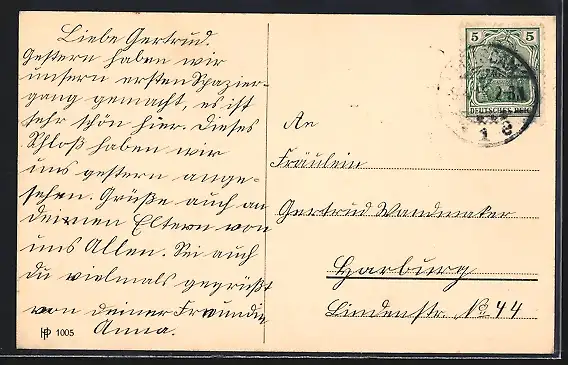 Liebe Gertrud.
Gestern haben wir
unsern ersten Spazier-
gang gemacht, es ist
sehr schön hier. Dieses
Schloß haben wir
uns gestern ange-
sehen. Grüße auch an
deinen Eltern von
uns Allen. Sei auch
du vielmals gegrüßt
von deiner Freundin
Anna.
HP 1005
5 5
DEUTSCHES REICH
An
Fräulein
Gertrud Wandmaker
Harburg
Lindenstr. No 44